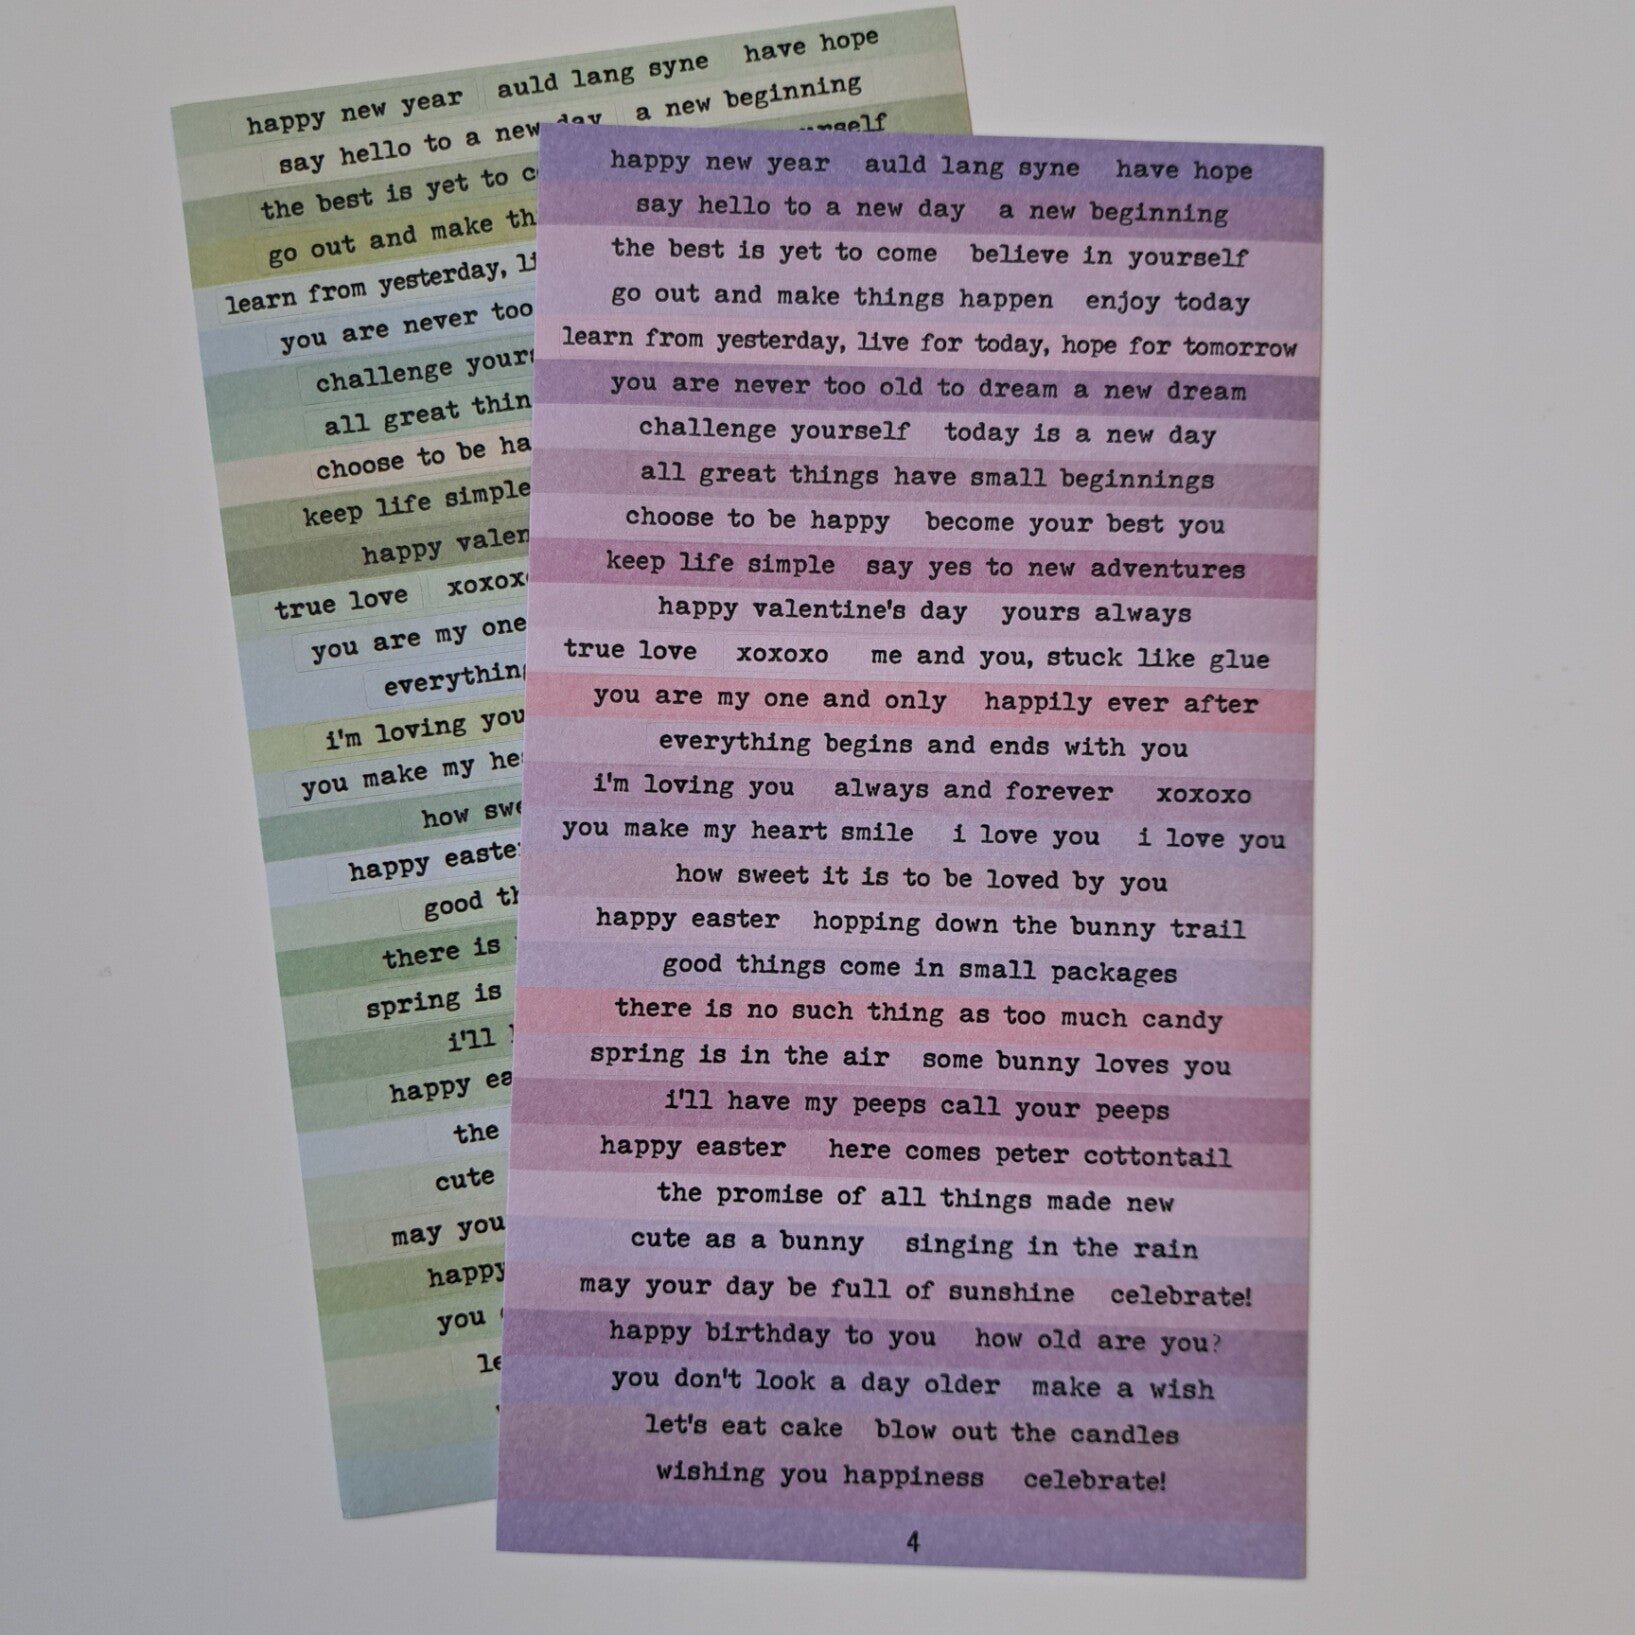 happy new year auld lang syne have hope
say hello to a new day a new beginning
the best is yet to
go out and make
learn from yesterday,
you are never too
challenge
all great
choose to be
keep life simple
happy
true love
you are my one
everything
i'm loving you
you make my
how
happy
good
there is
spring is
i'll
happy
the
cute
may you
happy
you
happy new year auld lang syne have hope
say hello to a new day a new beginning
the best is yet to come believe in yourself
go out and make things happen enjoy today
learn from yesterday, live for today, hope for tomorrow
you are never too old to dream a new dream
challenge yourself today is a new day
all great things have small beginnings
choose to be happy become your best you
keep life simple say yes to new adventures
happy valentine's day yours always
true love xoxoxo me and you, stuck like glue
you are my one and only happily ever after
everything begins and ends with you
i'm loving you always and forever xoxoxo
you make my heart smile i love you i love you
how sweet it is to be loved by you
happy easter hopping down the bunny trail
good things come in small packages
there is no such thing as too much candy
spring is in the air some bunny loves you
i'll have my peeps call your peeps
happy easter here comes peter cottontail
the promise of all things made new
cute as a bunny singing in the rain
may your day be full of sunshine celebrate!
happy birthday to you how old are you?
you don't look a day older make a wish
let's eat cake blow out the candles
wishing you happiness celebrate!
4